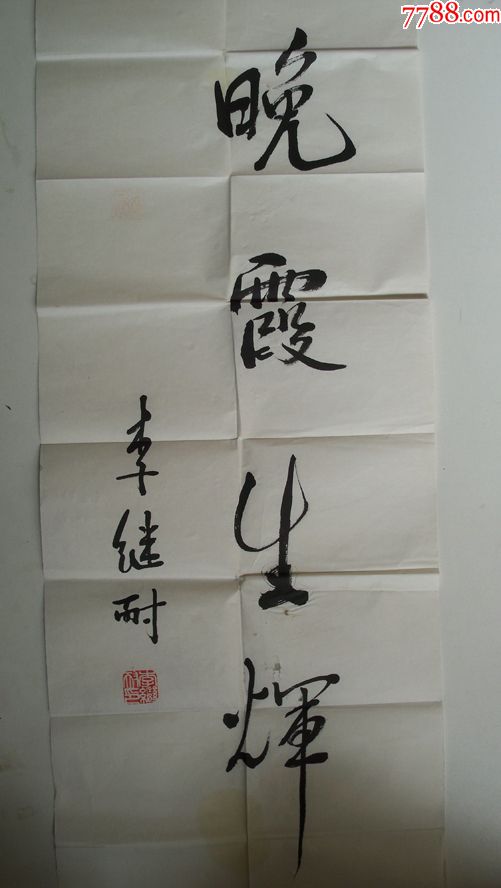 7788.com
晚霞生輝
李继耐